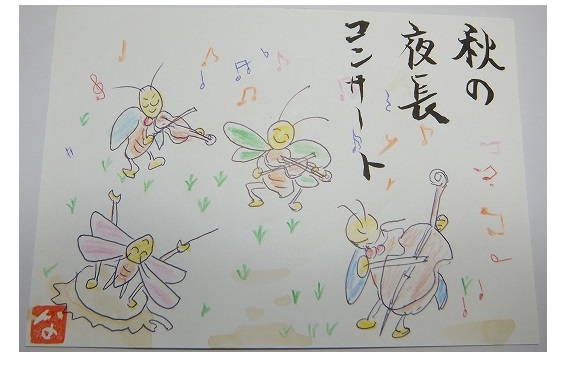 秋の
夜長
コンサート
な